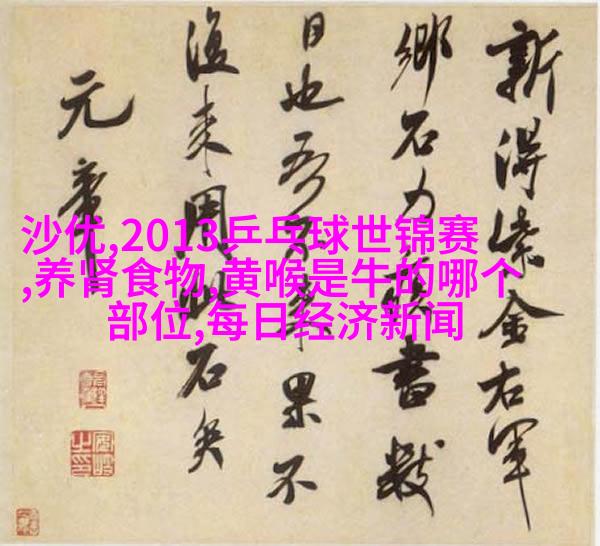 新得紫金右軍
鄉石力疾書數
日也吾不來果不
復來用此石矣
元章
沙优,2013乒乓球世锦赛
,养肾食物,黄喉是牛的哪个
部位,每日经济新闻